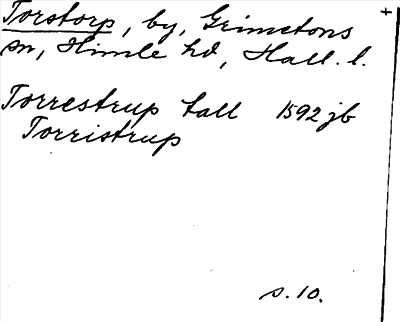 Torstorp, by, Grimetons
sn, Himle hd, Hall. l.
Torrestrup tall 1592 jb
Torristrup
s. 10.